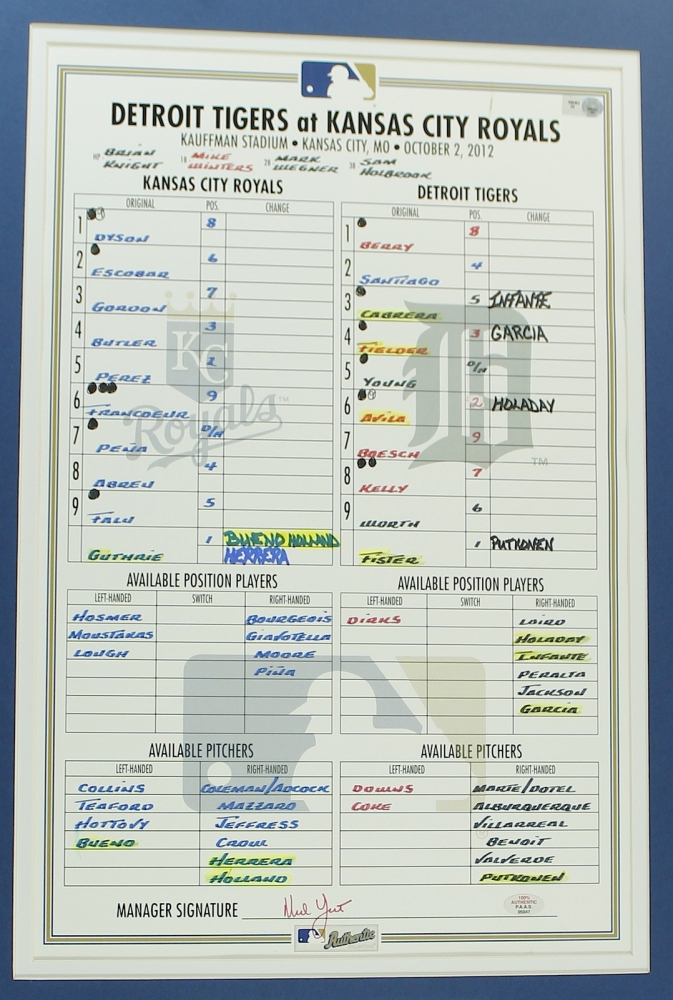 DETROIT TIGERS at KANSAS CITY ROYALS
KAUFFMAN STADIUM • KANSAS CITY, MO • OCTOBER 2, 2012
HP BRIAN KNIGHT 1B MIKE WINTERS 2B MARK WEGNER 3B SAM HOLBROOK
KANSAS CITY ROYALS
ORIGINAL POS. CHANGE
1 DYSON 8
2 ESCOBAR 6
3 GORDON 7
4 BUTLER 3
5 PEREZ 2
6 FRANCOEUR 9
7 PEÑA D/H
8 ABREU 4
9 FALU 5
GUTHRIE 1 BUENO HOLLAND
HERRERA
KC
Royals™
DETROIT TIGERS
ORIGINAL POS. CHANGE
1 BERRY 8
2 SANTIAGO 4
3 CABRERA 5 INFANTE
4 FIELDER 3 GARCIA
5 YOUNG D/H
6 AVILA 2 HOLADAY
7 BOESCH 9
8 KELLY 7
9 WORTH 6
FISTER 1 PUTKONEN
D
TM
AVAILABLE POSITION PLAYERS
LEFT-HANDED SWITCH RIGHT-HANDED
HOSMER BOURGEOIS
MOUSTAKAS GIAVOTELLA
LOUGH MOORE
PIÑA
AVAILABLE POSITION PLAYERS
LEFT-HANDED SWITCH RIGHT-HANDED
DIRKS LAIRD
HOLADAY
INFANTE
PERALTA
JACKSON
GARCIA
AVAILABLE PITCHERS
LEFT-HANDED RIGHT-HANDED
COLLINS COLEMAN/ADCOCK
TEAFORD MAZZARO
HOTTOVY JEFFRESS
BUENO CROW
HERRERA
HOLLAND
AVAILABLE PITCHERS
LEFT-HANDED RIGHT-HANDED
DOWNS MARTE/DOTEL
COKE ALBURQUERQUE
VILLARREAL
BENOIT
VALVERDE
PUTKONEN
MANAGER SIGNATURE Ned Yost
100%
AUTHENTIC
P.A.A.S.
Authentic